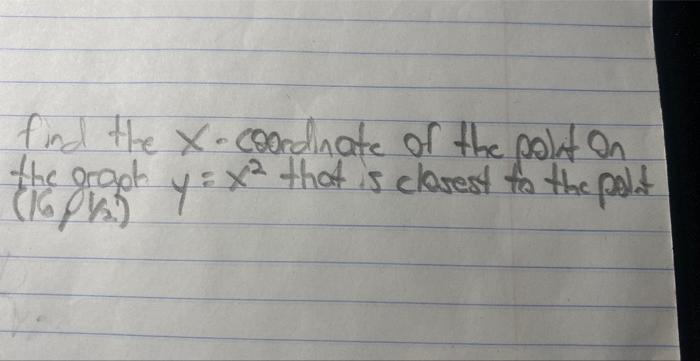 find the x-coordinate of the point on
the graph y = x² that is closest to the point
(16, 1/2)